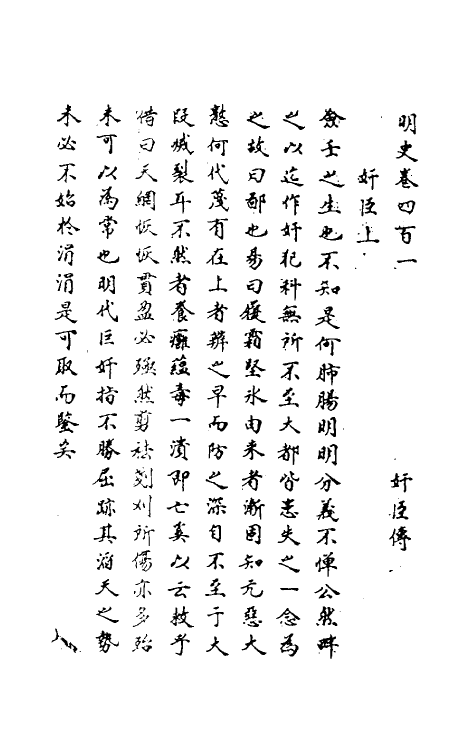 明史卷四百一
奸臣傳
奸臣上
僉壬之生也不知是何肺腸明明分義不憚公然畔
之以迄作奸犯科無所不至大都皆患失之一念為
之故曰鄙也易曰履霜堅氷由来者漸固知元惡大
憝何代蔑有在上者辨之早而防之深自不至于大
段媙裂耳不然者養癰蘊毒一潰即亡奚以云救乎
語曰天網恢恢貫盈必殛然剪袪剗刈所傷亦多殆
未可以為常也明代巨奸指不勝屈跡其滔天之勢
未必不始於涓涓是可取而鑒矣